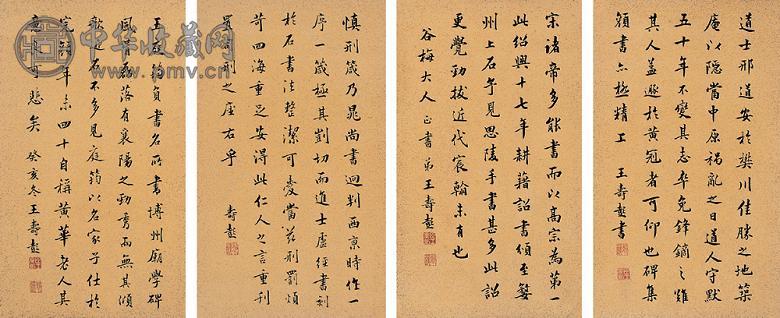 道士邢道安於樊川佳勝之地築
庵以隱當中原禍亂之日道人守默
五十年不變其志卒免鋒鏑之難
其人蓋遯於黃冠者可仰也碑集
顏書亦極精工 王壽彭書
宋諸帝多能書而以高宗為第一
此紹興十七年耕藉詔書頒至婺
州上石乍見思陵手書甚多此詔
更覺勁拔近代宸翰未有也
谷梅大人正書弟王壽彭
慎刑箴乃晁尚書迥判西京時作一
序一箴極其剴切而進士盧經書刻
於石書法整潔可愛當茲刑罰煩
苛四海重足安得此仁人之言重刊
置司刑之座右乎
壽彭
王庭筠負書名所書博州廟學碑
風骨磊落有襄陽之勁秀而無其傾
欹石不多見庭筠以名家子仕於
完顏年未四十自稱黃華老人其
意可悲矣 癸亥冬王壽彭
中华收藏网
www.pmv.cn